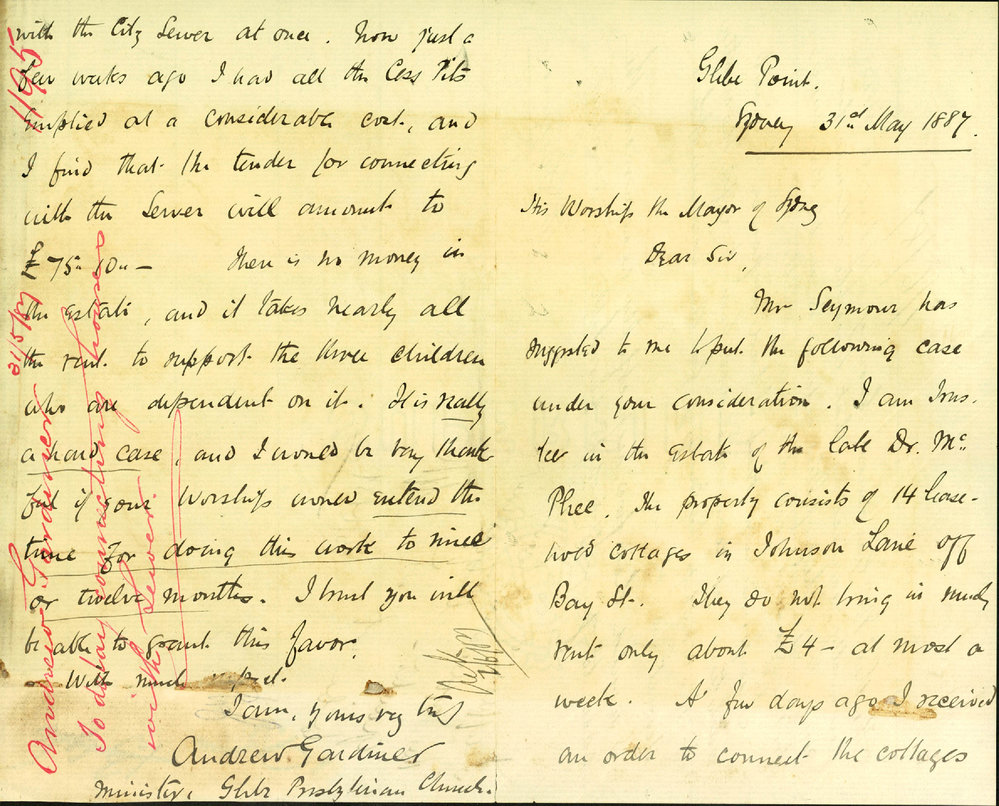 Glebe Point.
Sydney 31st May 1887.
His Worship the Mayor of Sydney
Dear Sir,
Mr Seymour has
suggested to me to put the following case
under your consideration. I am Trus-
tee in the Estate of the late Dr. Mc
Phee. The property consists of 14 lease-
hold cottages in Johnson Lane off
Bay St. They do not bring in much
rent only about £4 - at most a
week. A few days ago I received
an order to connect the cottages
with the City Sewer at once. Now just a
few weeks ago I had all the Cess Pits
Emptied at a considerable cost, and
I find that the tender for connecting
with the Sewer will amount to
£75 " 10 " -  There is no money in
the Estate, and it takes nearly all
the rent to support the three children
who are dependent on it. It is really
a hard case, and I would be very thank
ful if your Worship would extend the
time for doing this work to nine
or twelve months. I trust you will
be able to grant this favor,
With much respect.
I am, yours very truly
Andrew Gardiner
Minister, Glebe Presbyterian Church.
1195
Andrew Gardiner 31/5/87
To delay connecting houses
with Sewer.